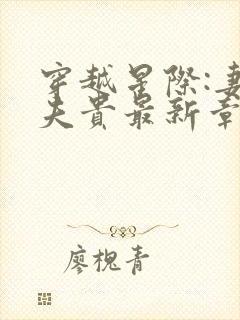 穿越星际:妻
夫贵最新章
廖槐青